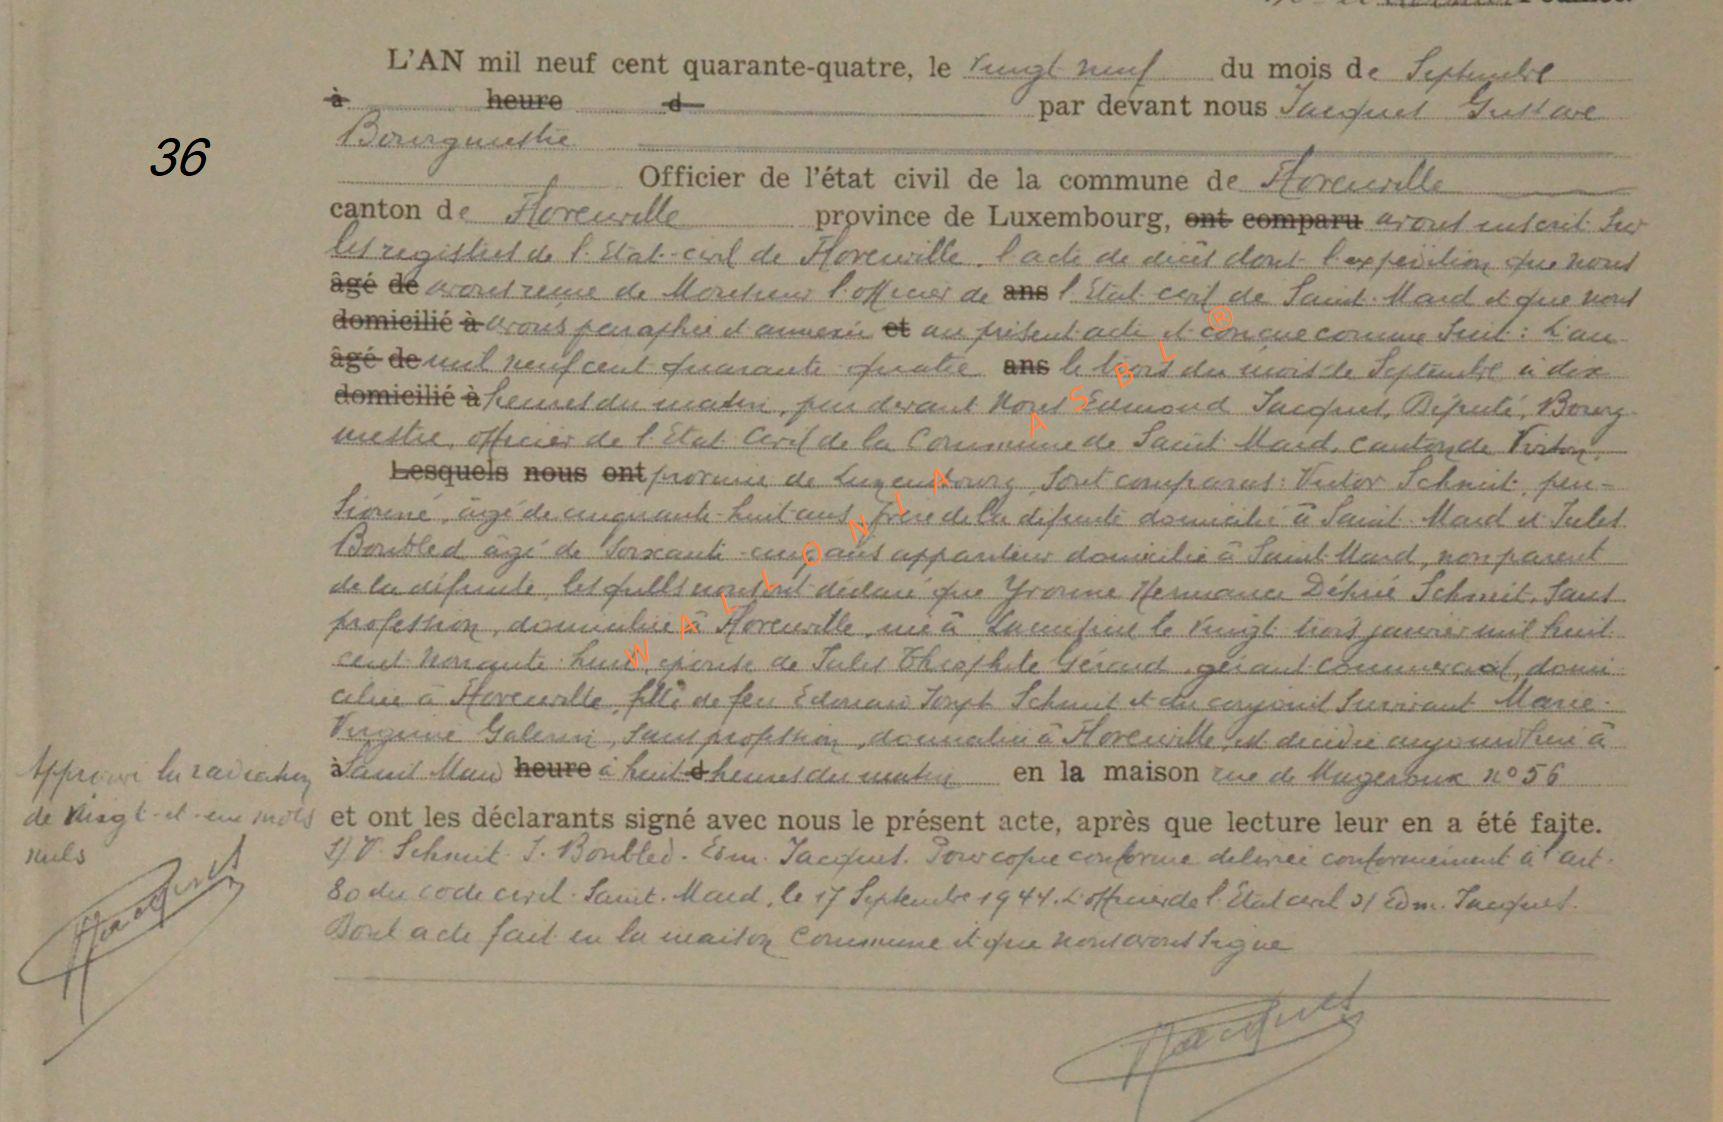 36
L'AN mil neuf cent quarante-quatre, le vingt neuf du mois de Septembre
à heure d par devant nous Jacques Gustave
Bourgmestre
Officier de l'état civil de la commune de Florenville
canton de Florenville province de Luxembourg, ont comparu avons inscrit sur
les registres de l'Etat-civil de Florenville, l'acte de décès dont l'expédition que nous
âgé de avons reçue de Monsieur l'officier de ans l'Etat civil de Saint-Mard et que nous
domicilié à avons paraphée et annexée et au présent acte et conçue comme suit : L'an
âgé de mil neuf cent quarante quatre ans le trois du mois de Septembre à dix
domicilié à heures du matin, par devant Nous Edmond Jacques, Député, Bourg-
mestre, officier de l'Etat Civil de la Commune de Saint-Mard, canton de Virton,
Lesquels nous ont province de Luxembourg, sont comparus : Victor Schmit, pen-
sionné, âgé de cinquante-huit ans, frère de la défunte domicilié à Saint-Mard et Jules
Boubled âgé de soixante-cinq ans appariteur domicilié à Saint-Mard, non parent
de la défunte, lesquels nous ont déclaré que Yvonne Hermance Désirée Schmit, sans
profession, domiciliée à Florenville, née à le vingt trois janvier mil huit
cent nonante huit, épouse de Jules Théophile Gérard, gérant commercial, domi-
cilié à Florenville, fille de feu Edouard Joseph Schmit et du conjoint survivant Marie-
Virginie sans profession, domiciliée à Florenville, est décédée aujourd'hui à
à Saint Mard heure à huit d heures du matin en la maison rue de Mageroux n° 56
et ont les déclarants signé avec nous le présent acte, après que lecture leur en a été faite.
s) V. Schmit. J. Boubled. Edm. Jacques. Pour copie conforme délivrée conformément à l'art.
80 du code civil. Saint-Mard, le 17 Septembre 1944. L'officier de l'Etat civil s) Edm. Jacques.
Dont acte fait en la maison Commune et que nous avons signé
Approuvé la radiation
de vingt-et-un mots
nuls
GJacques
GJacques
WALLONIA ASBL ®